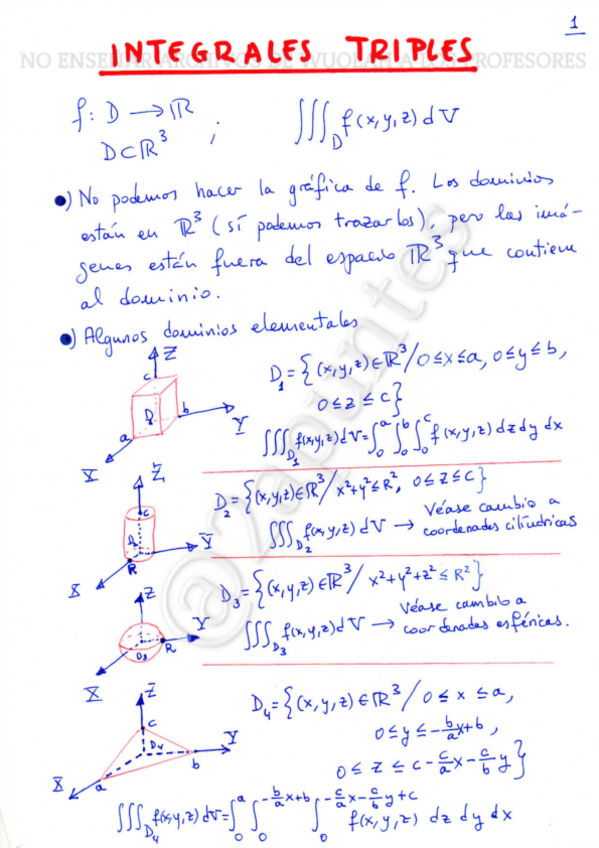 1
INTEGRALES TRIPLES
f: D → ℝ ; ∭_D f(x,y,z) dV
D⊂ℝ³
•) No podemos hacer la gráfica de f. Los dominios
están en ℝ³ (sí podemos trazarlos), pero las imá-
genes están fuera del espacio ℝ³ que contiene
al dominio.
•) Algunos dominios elementales
Z
c
D₁
b
Y
a
X
D₁ = {(x,y,z)∈ℝ³/0≤x≤a, 0≤y≤b,
0≤z≤c}
∭_D₁ f(x,y,z)dV = ∫₀^a ∫₀^b ∫₀^c f(x,y,z) dz dy dx
Z
c
D₂
Y
R
X
D₂ = {(x,y,z)∈ℝ³/ x²+y²≤R², 0≤z≤c}
∭_D₂ f(x,y,z) dV → Véase cambio a
coordenadas cilíndricas
Z
Y
D₃
R
X
D₃ = {(x,y,z)∈ℝ³/ x²+y²+z²≤R²}
∭_D₃ f(x,y,z)dV → Véase cambio a
coordenadas esféricas.
Z
c
D₄
Y
b
a
X
D₄ = {(x,y,z)∈ℝ³/ 0≤x≤a,
0≤y≤-b/a x+b,
0≤z≤c-c/a x-c/b y}
∭_D₄ f(x,y,z) dV = ∫₀^a ∫₀^(-b/a x+b) ∫₀^(-c/a x-c/b y+c) f(x,y,z) dz dy dx